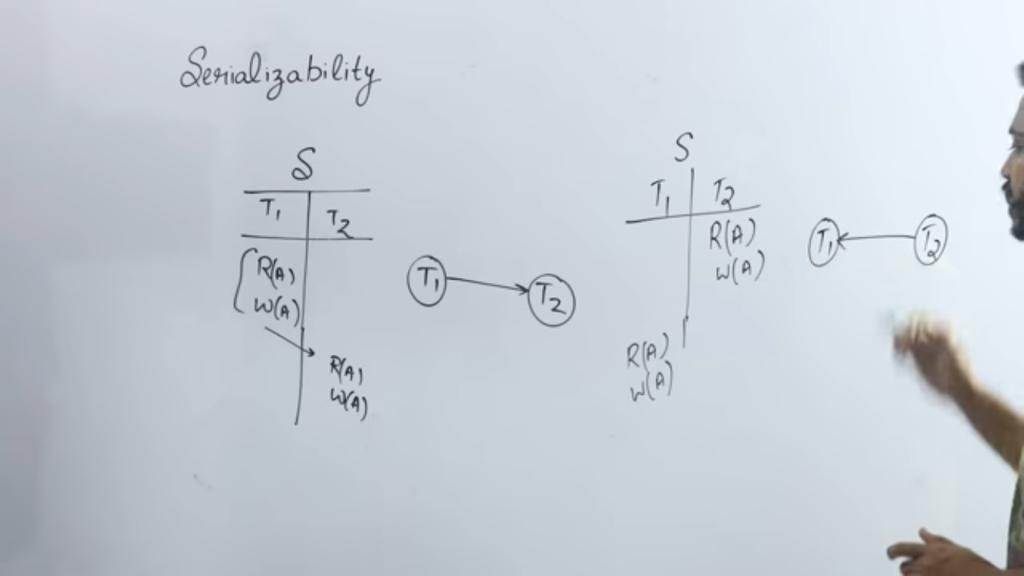 Serializability
S
T1 T2
R(A)
W(A)
R(A)
W(A)
T1 T2
S
T1 T2
R(A)
W(A)
R(A)
W(A)
T1 T2